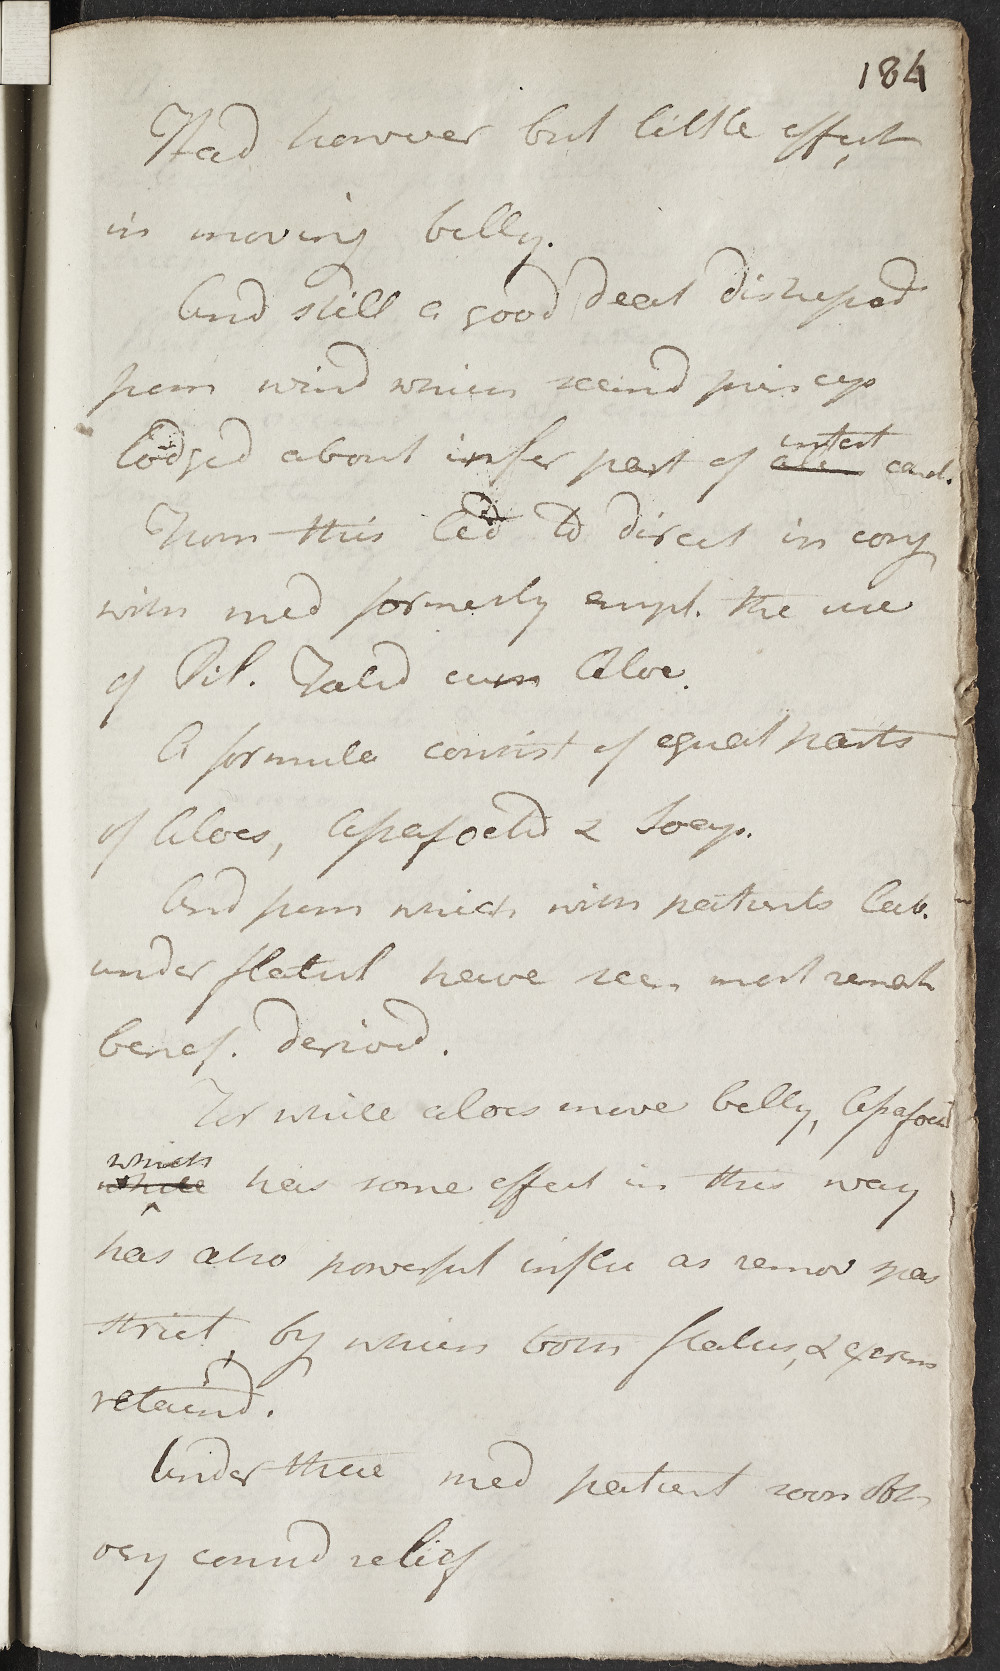 184
Had however but little effect
in moving belly.
And still a good deal distressed
from wind which seemd princep
lodged about infer part of intest canal.
From this led to direct in conj
with med formerly empl. the use
of Pil. Foetid cum Aloe.
A formula consist of equal parts
of Aloes, Assafoetid & Soap.
And from which with patients lab.
under flatul have seen most remark
benef. derived.
For while aloes move belly, Assafoetid
which while has some effect in this way
has also powerful influ as remov spas
strict, by which both flatus, & excrem
retaind.
Under these med patient soon obt
very consid relief